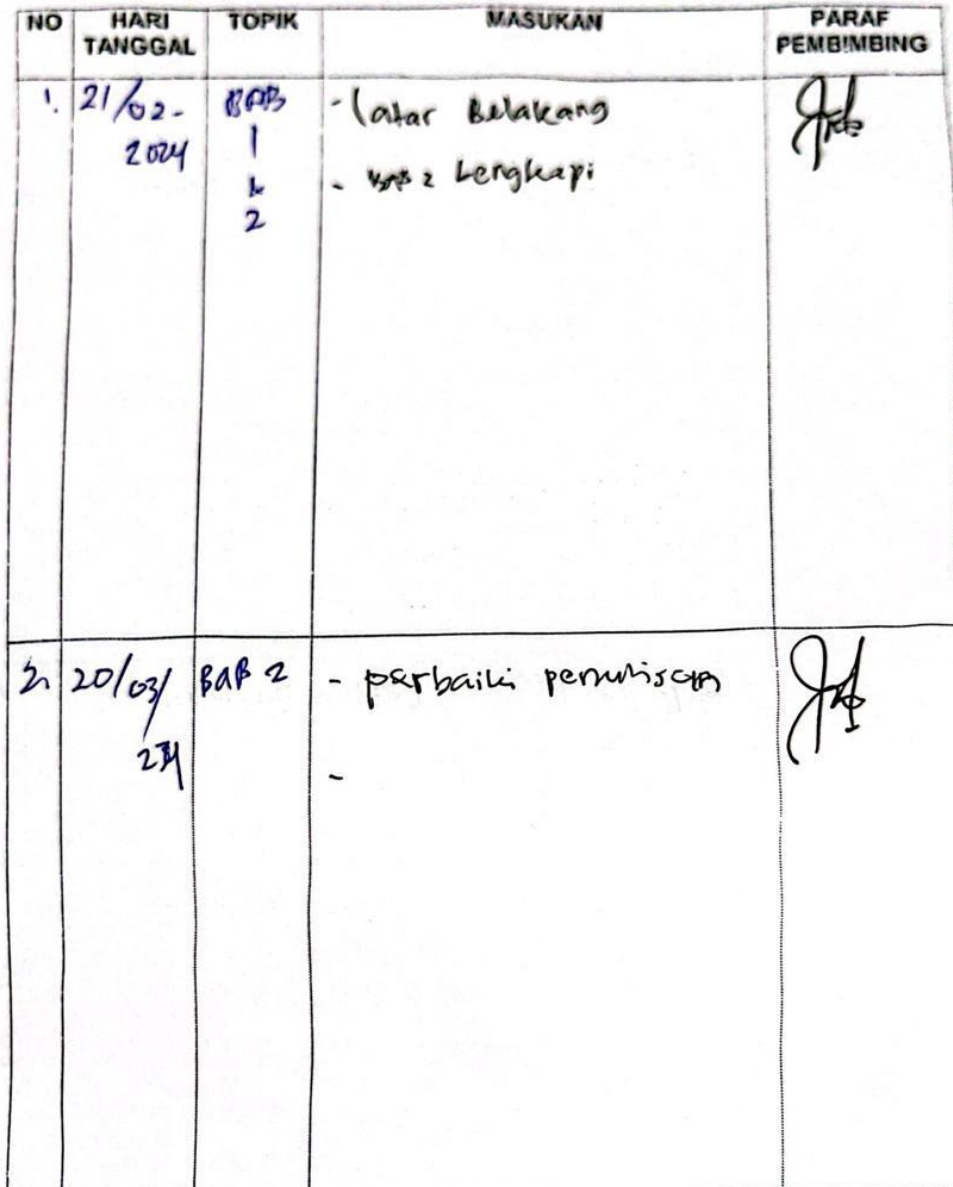 NO HARI TANGGAL TOPIK MASUKAN PARAF PEMBIMBING
1. 21/02- BAB - latar Belakang
2024 1
& - BAB 2 Lengkapi
2
2. 20/03/ BAB 2 - perbaiki penulisan
-